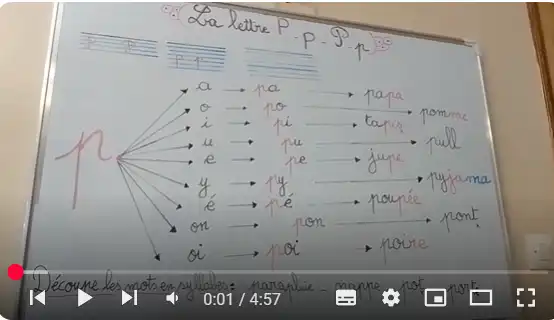 La lettre P - p - P - p
P P
P p
p
a pa papa
o po pomme
i pi tapis
u pu pull
e pe jupe
y py pyjama
é pé poupée
on pon pont
oi poi poire
Découpe les mots en syllabes : parapluie - nappe - pot - port
0:01 / 4:57